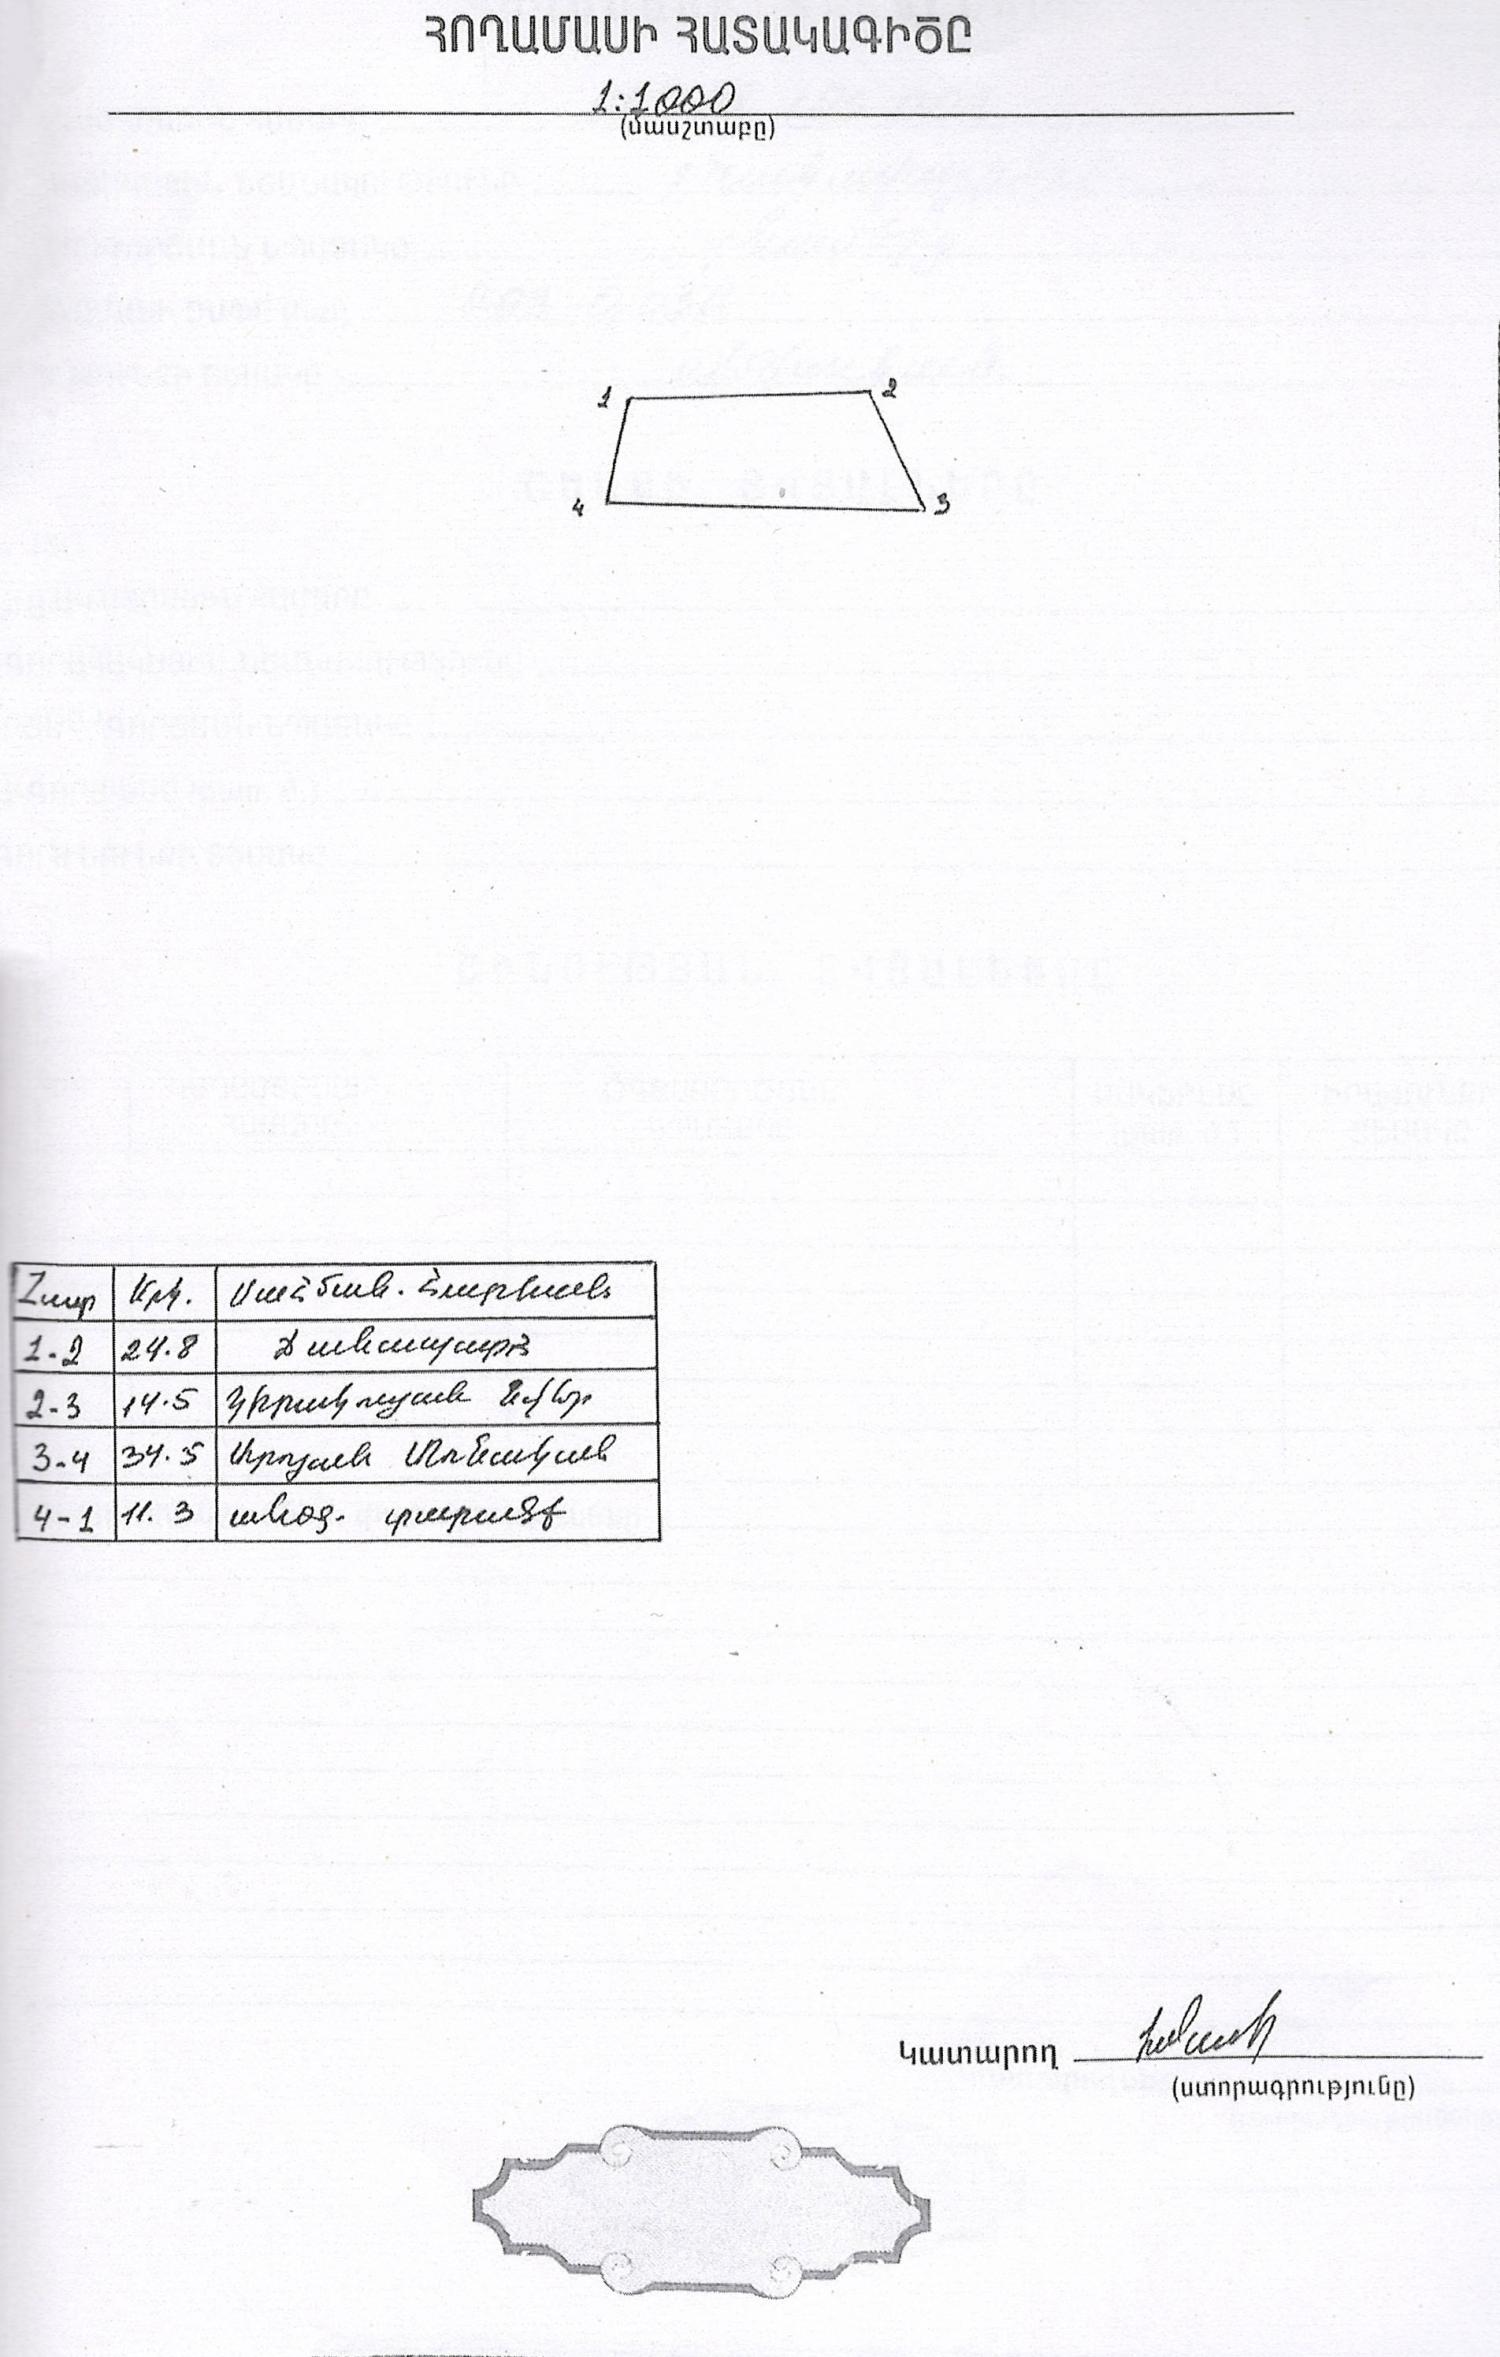 ՀՈՂԱՄԱՍԻ ՀԱՏԱԿԱԳԻԾԸ
1:1000
(մասշտաբը)
1 2
4 3
Հատ Երկ. Սահման. Հարևան.
1-2 24.8 Ճանապարհ
2-3 14.5 Կիրակոսյան
3-4 34.5 Աբրոյան Առնական
4-1 11.3 անօգ. տարածք
Կատարող
(ստորագրությունը)